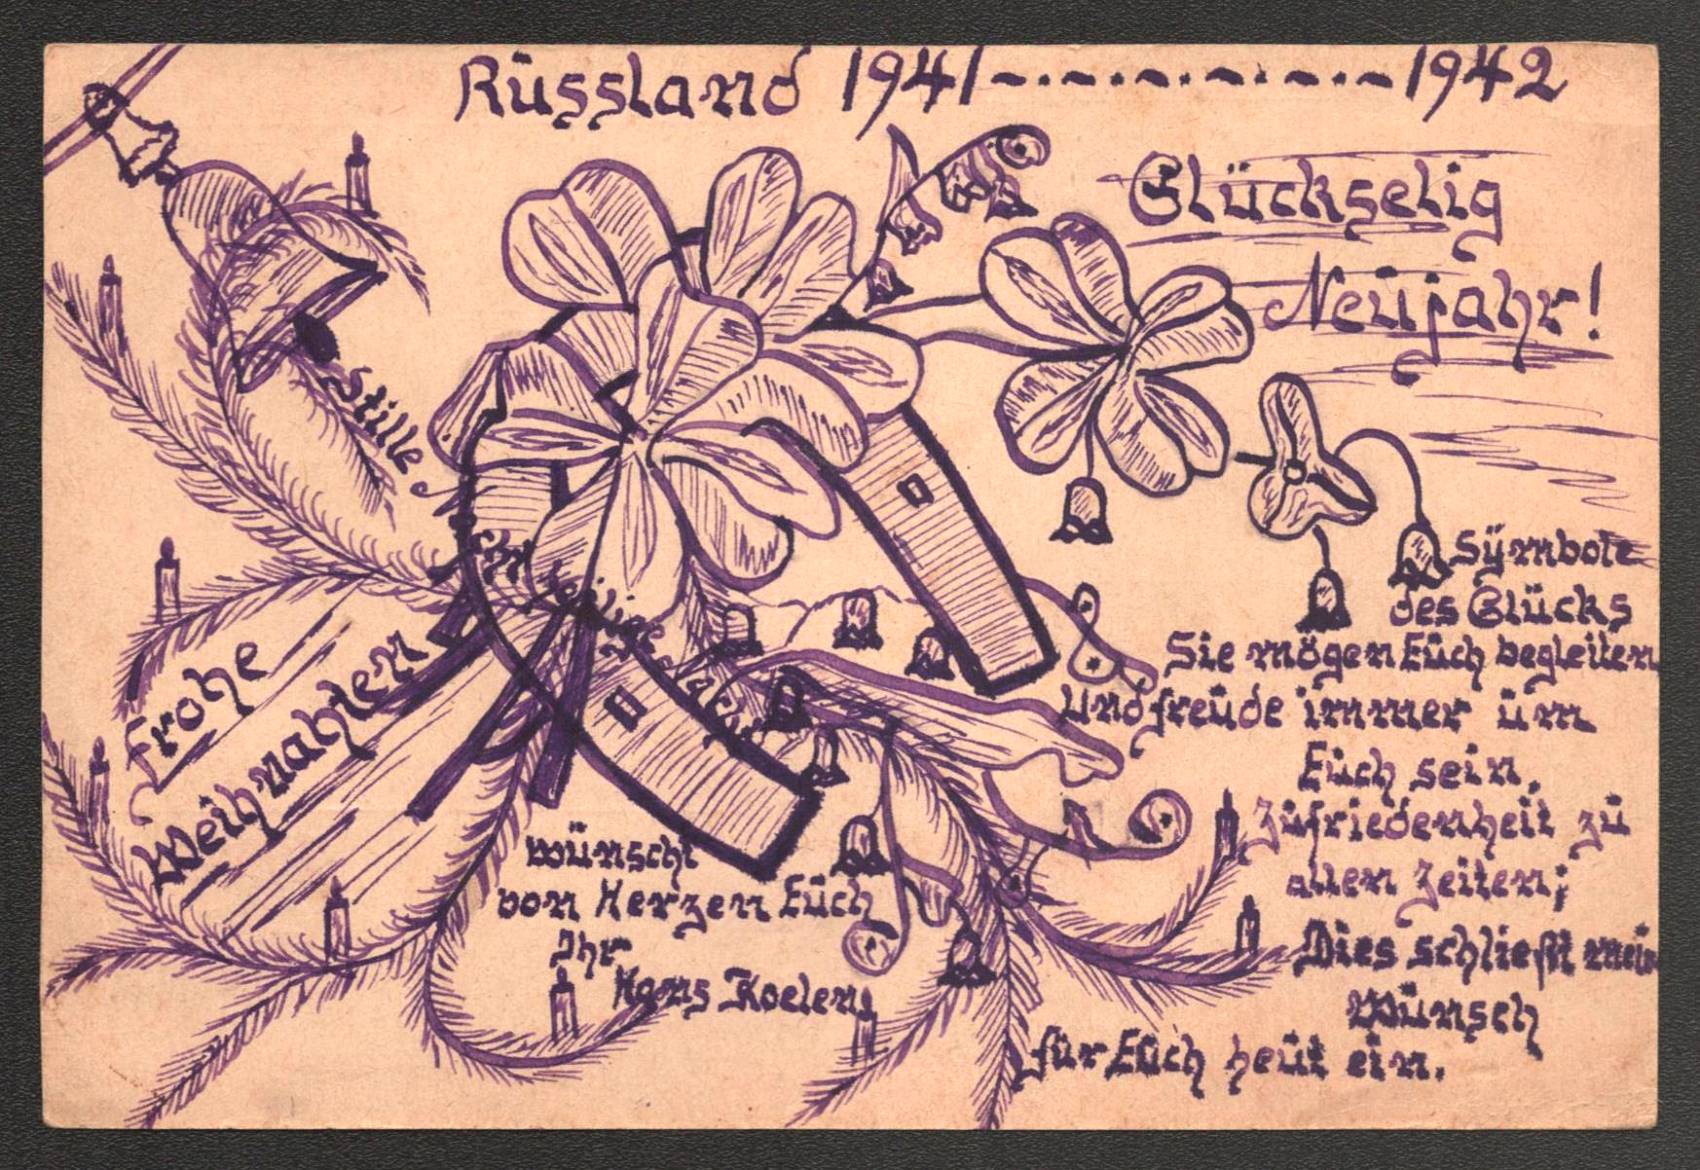 Rüssland 1941 -·-·-·-·-·- 1942
Glückselig
Neüjahr!
Stille
Frohe
Weihnahten
wünscht
von Herzen Eüch
Ihr
Hans Koelen
Sÿmbole
des Glücks
Sie mögen Eüch begleiten
Und freüde immer üm
Eüch sein,
Züfriedenheit zü
allen Zeiten;
Dies schließt mein
Wünsch
für Eüch heüt ein.